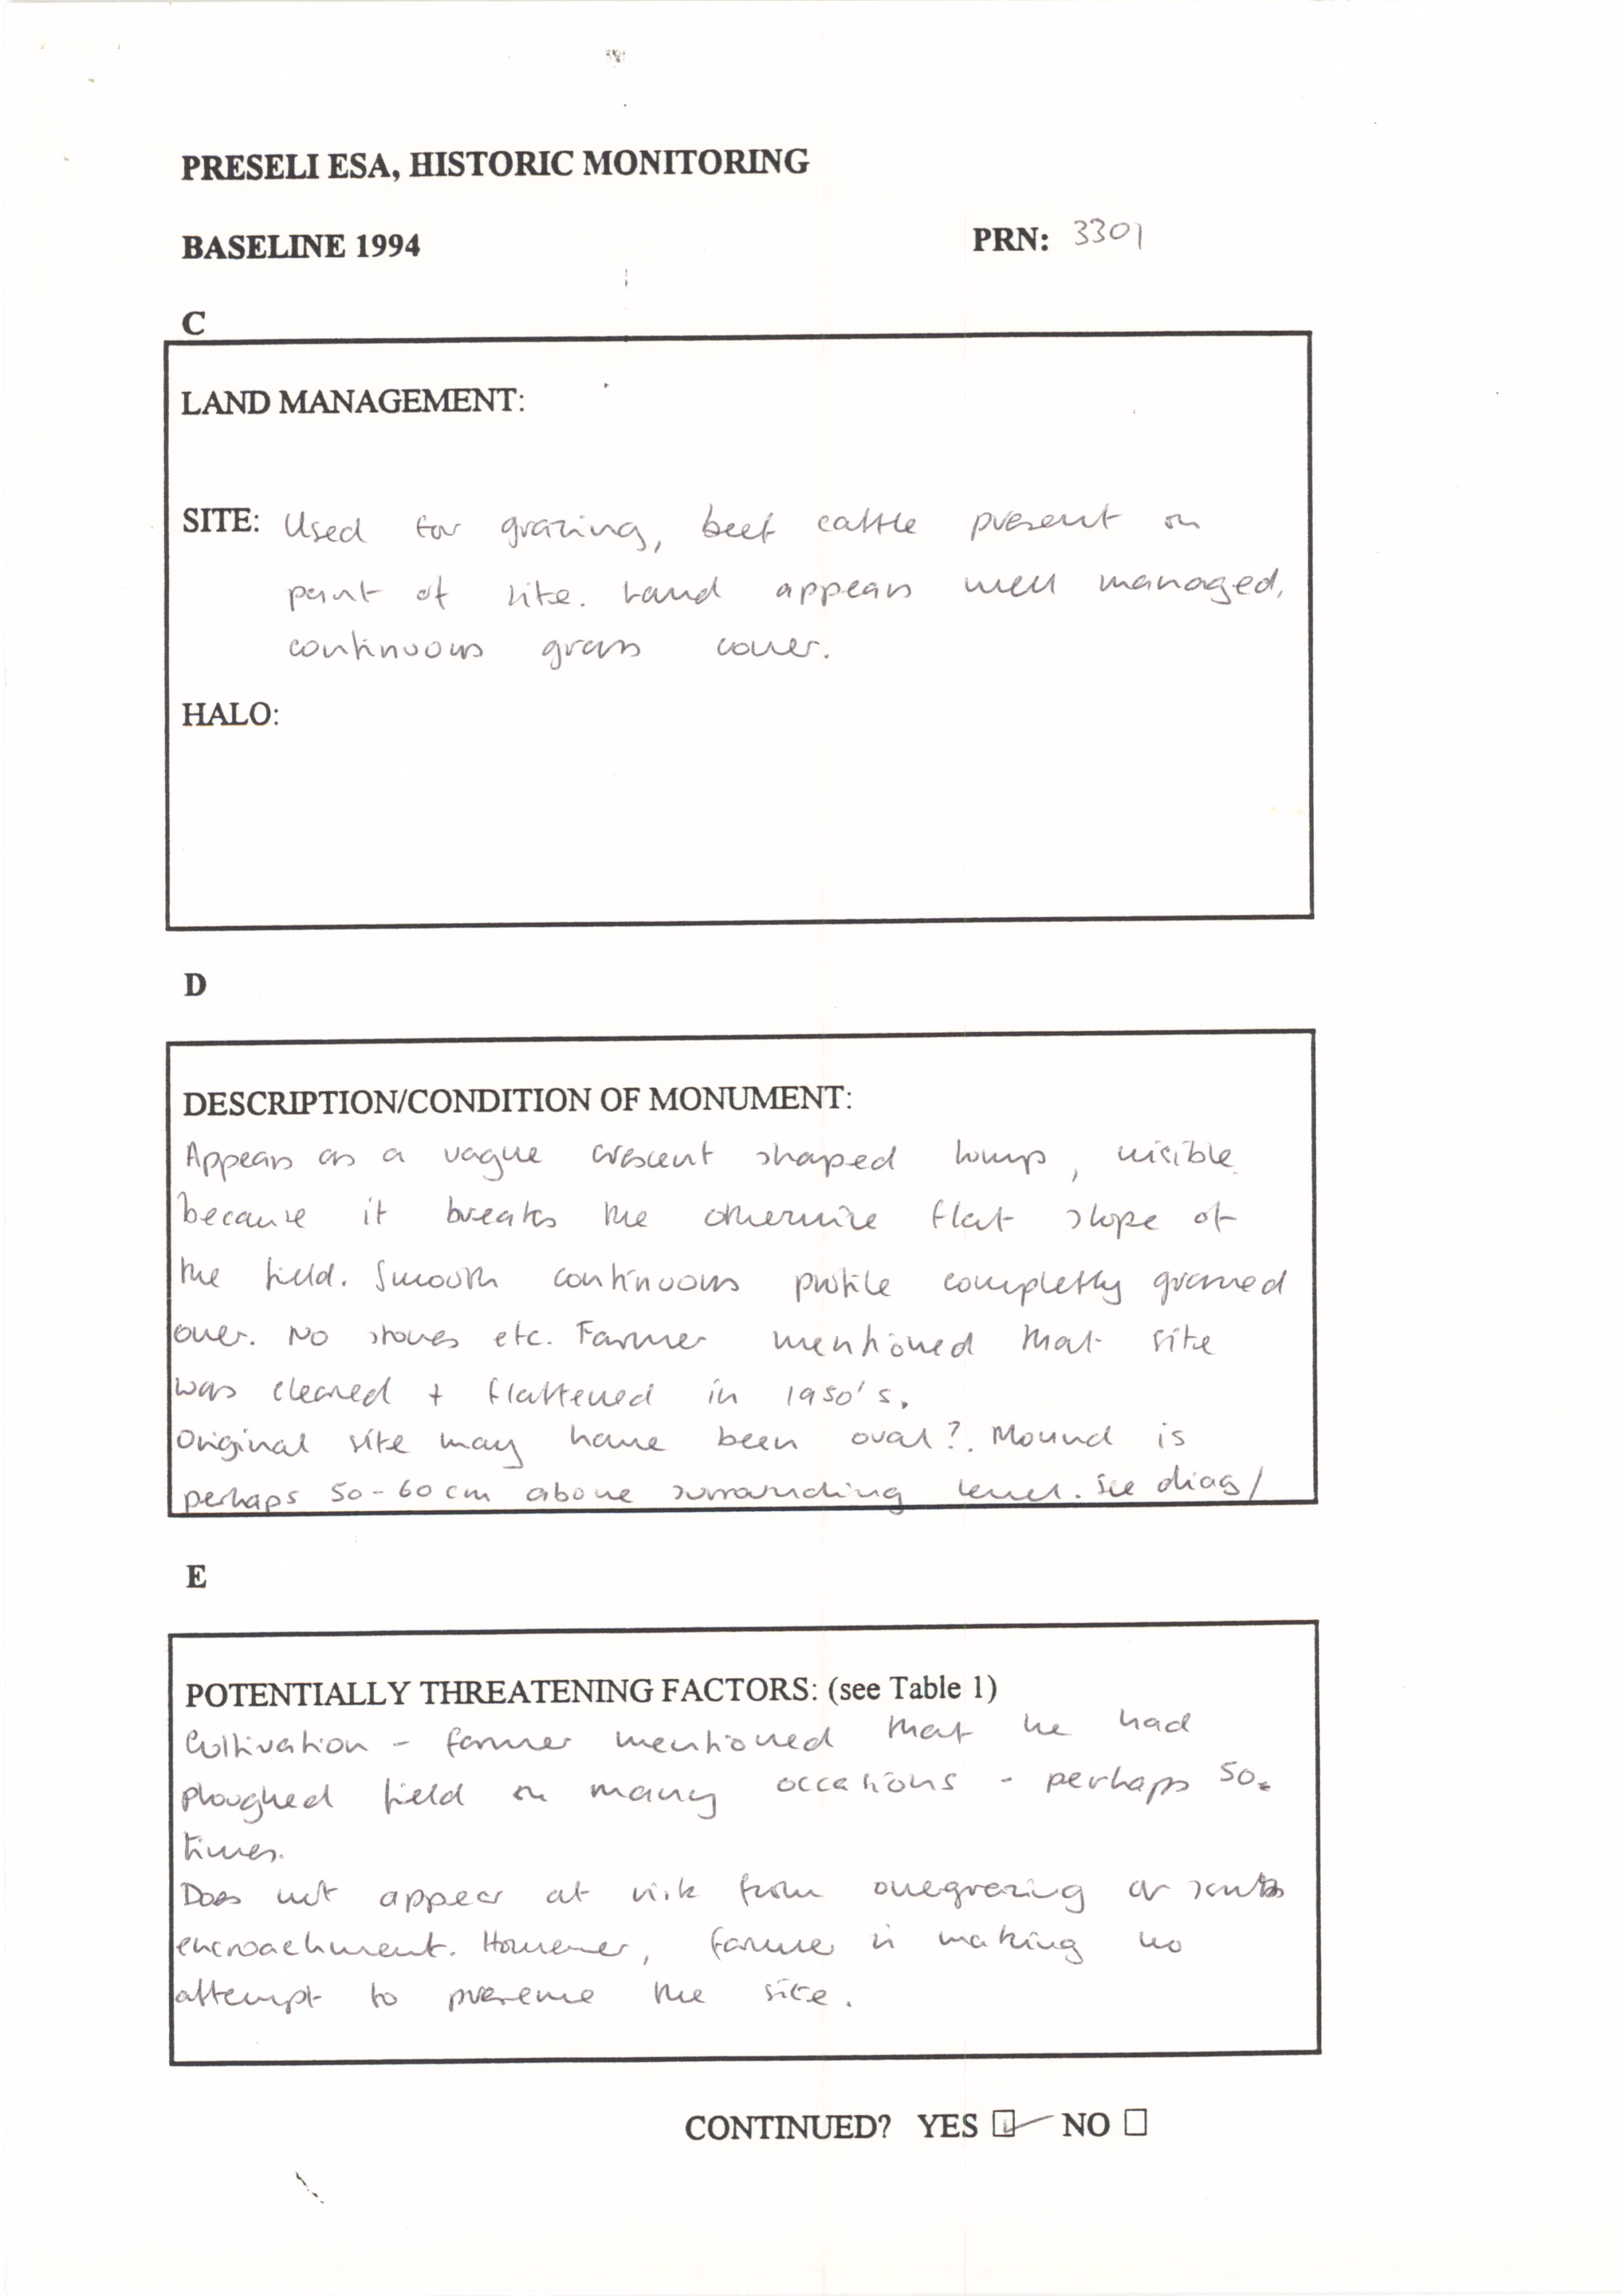 PRESELI ESA, HISTORIC MONITORING
BASELINE 1994
PRN: 3301
C
LAND MANAGEMENT:
SITE: Used for grazing, beef cattle present on
part of site. Land appears well managed,
continuous grass cover.
HALO:
D
DESCRIPTION/CONDITION OF MONUMENT:
Appears as a vague crescent shaped hump, visible
because it breaks the otherwise flat slope of
the field. Smooth continuous profile completly grassed
over. No stones etc. Farmer mentioned that site
was cleared + flattened in 1950's.
Original site may have been oval?. Mound is
perhaps 50-60cm above surrounding level. See diag/
E
POTENTIALLY THREATENING FACTORS: (see Table 1)
Cultivation - farmer mentioned that he had
ploughed field on many occasions - perhaps 50
times.
Does not appear at risk from overgrazing or
encroachment. However, farmer is making no
attempt to preserve the site.
CONTINUED? YES ☑ NO ☐